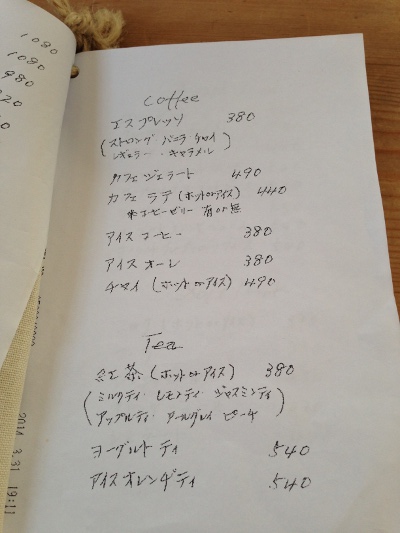 1080
1080
980
Coffee
エスプレッソ 380
(ストロング バニラ・チョコ
レギュラー・キャラメル)
カフェジェラート 490
カフェ ラテ (ホットorアイス) 440
※コーヒーゼリー 有or無
アイスコーヒー 380
アイスオーレ 380
チャイ (ホットorアイス) 490
Tea
紅茶 (ホットorアイス) 380
(ミルクティ・レモンティ・ジャスミンティ
アップルティ・アールグレイ ピーチ)
ヨーグルト ティ 540
アイスオレンヂティ 540
2014 3.31 19:11